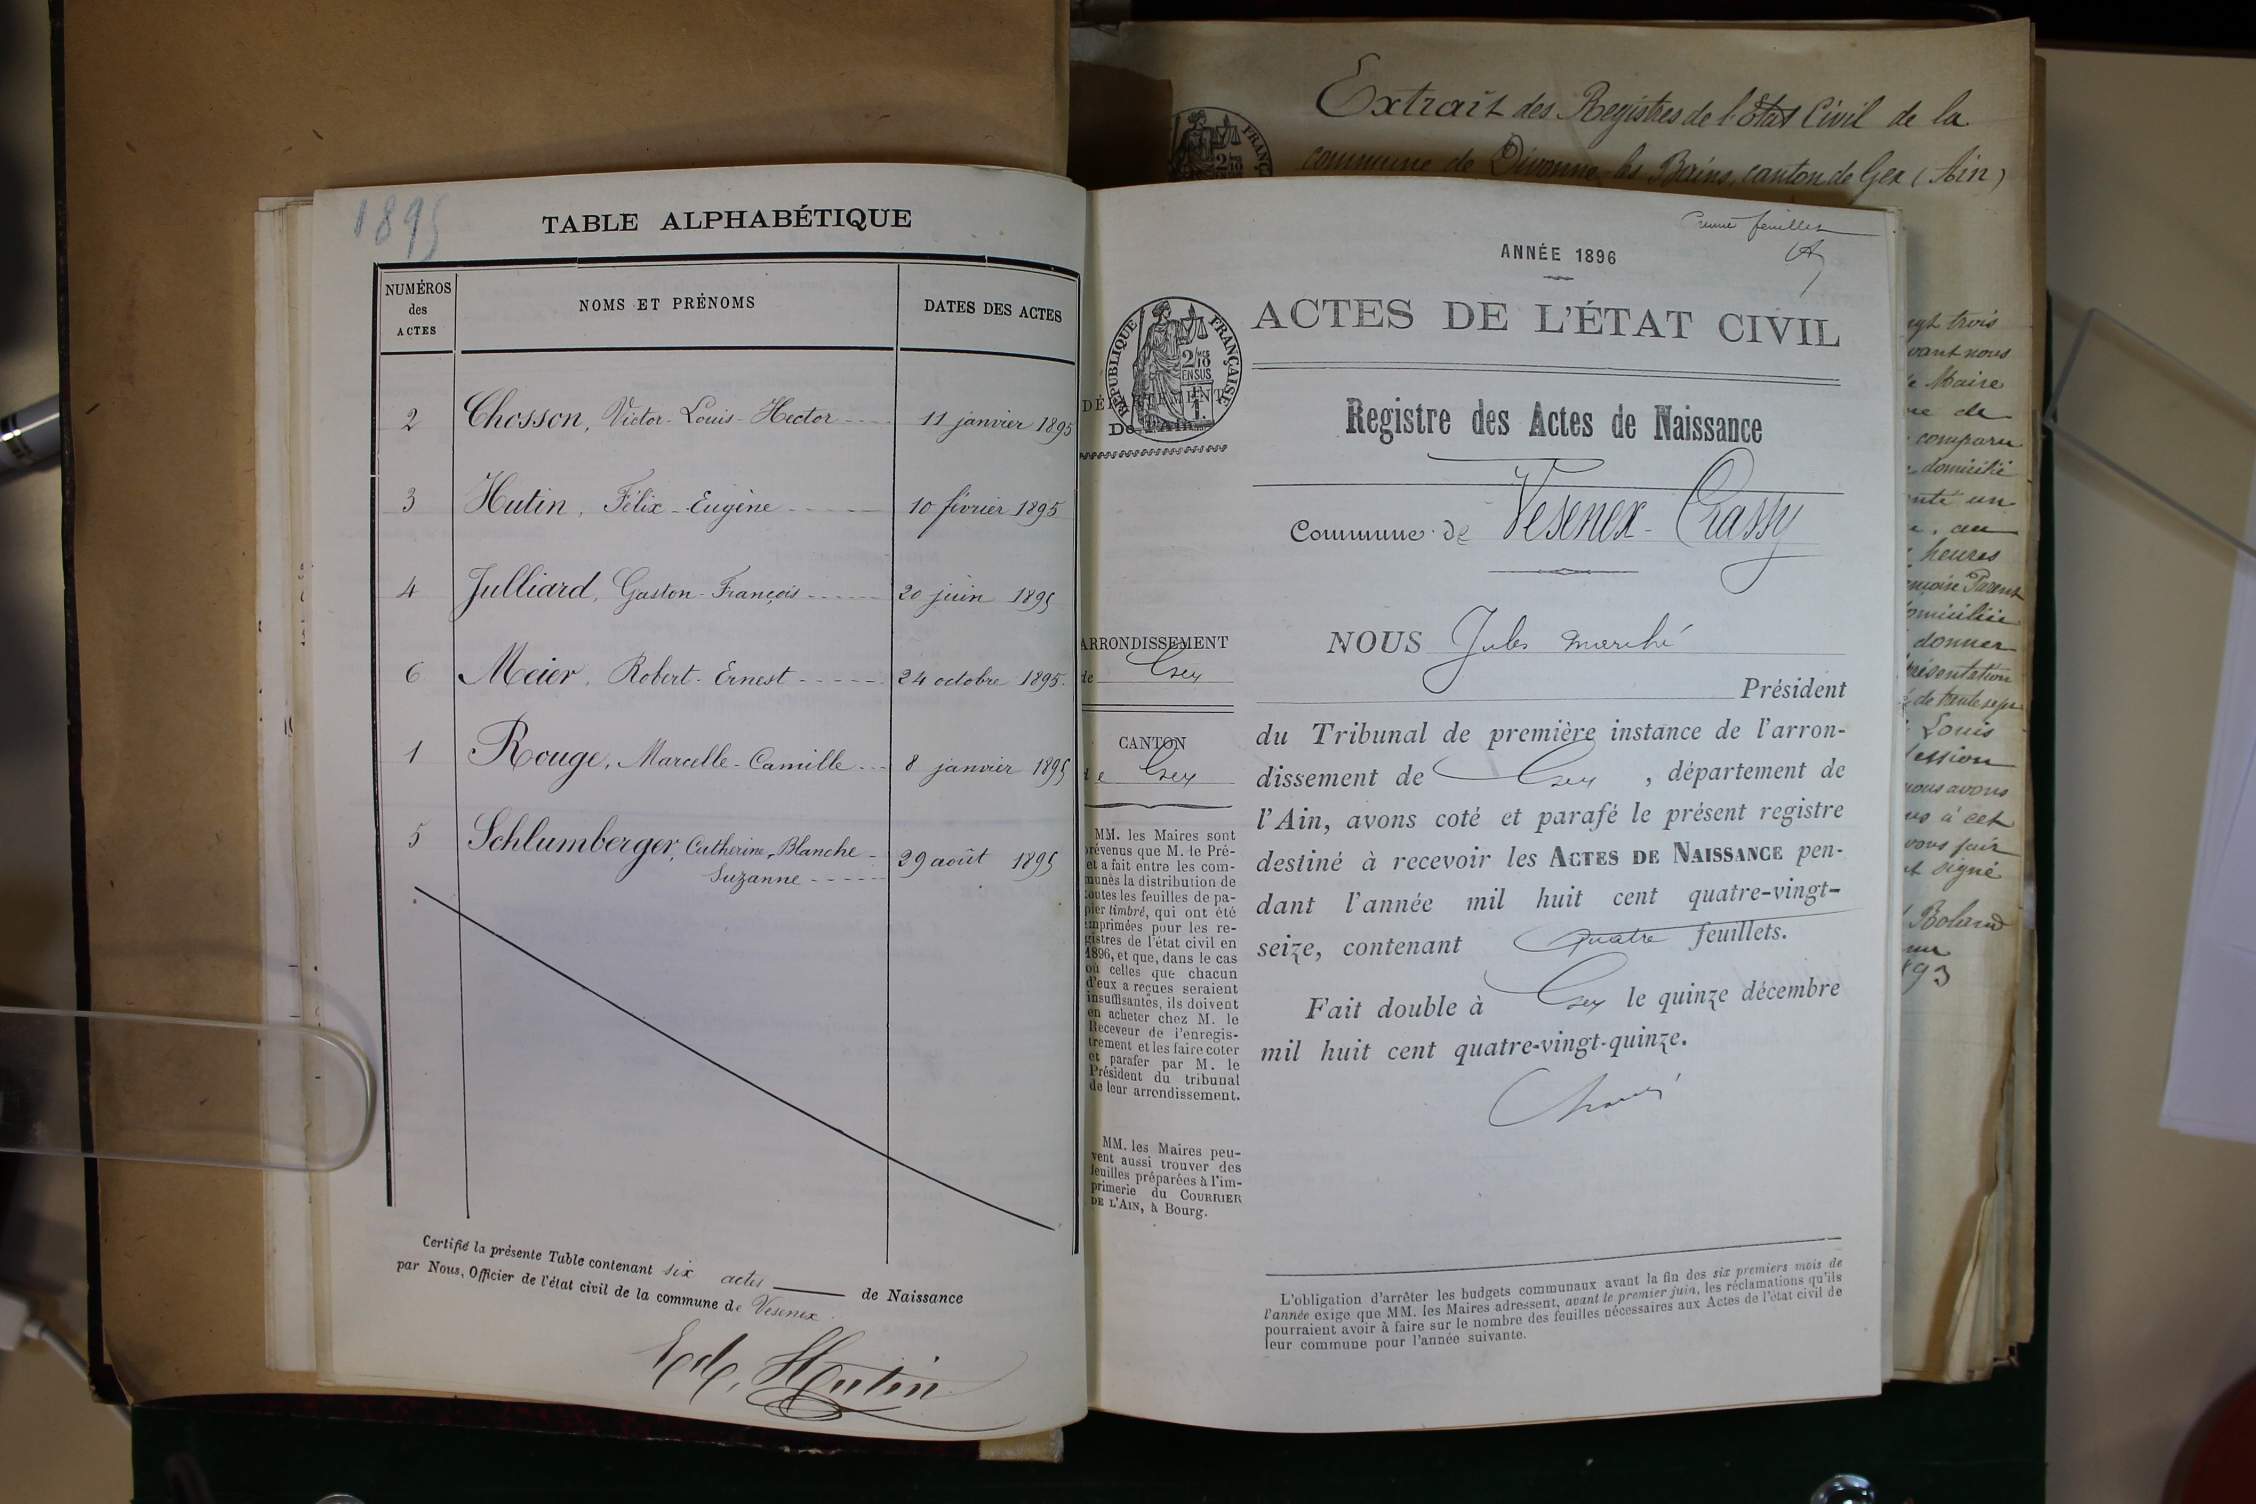 1895
TABLE ALPHABÉTIQUE
NUMÉROS des ACTES
NOMS ET PRÉNOMS
DATES DES ACTES
2 Chosson, Victor-Louis-Hector 11 janvier 1895
3 Hutin, Félix-Eugène 10 février 1895
4 Julliard, Gaston-François 20 juin 1895
6 Meier, Robert-Ernest 24 octobre 1895.
1 Rouge, Marcelle-Camille 8 janvier 1895
5 Schlumberger, Catherine-Blanche
Suzanne 29 août 1895
Certifié la présente Table contenant six actes de Naissance
par Nous, Officier de l'état civil de la commune de Vesenex.
Hutin
Extrait des Registres de l'État Civil de la
commune de Divonne-les-Bains, canton de Gex (Ain)
feuillet
ANNÉE 1896
ACTES DE L'ÉTAT CIVIL
RÉPUBLIQUE FRANÇAISE
DÉPARTEMENT
De l'Ain
Registre des Actes de Naissance
Commune de Vesenex-Crassy
ARRONDISSEMENT
de Gex
CANTON
de Gex
MM. les Maires sont
prévenus que M. le Pré-
et a fait entre les com-
munes la distribution de
toutes les feuilles de pa-
pier timbré, qui ont été
imprimées pour les re-
gistres de l'état civil en
1896, et que, dans le cas
où celles que chacun
d'eux a reçues seraient
insuffisantes, ils doivent
en acheter chez M. le
Receveur de l'enregis-
trement et les faire coter
et parafer par M. le
Président du tribunal
de leur arrondissement.
MM. les Maires peu-
vent aussi trouver des
feuilles préparées à l'im-
primerie du COURRIER
DE L'AIN, à Bourg.
NOUS Jules
Président
du Tribunal de première instance de l'arron-
dissement de Gex, département de
l'Ain, avons coté et parafé le présent registre
destiné à recevoir les ACTES DE NAISSANCE pen-
dant l'année mil huit cent quatre-vingt-
seize, contenant quatre feuillets.
Fait double à Gex le quinze décembre
mil huit cent quatre-vingt-quinze.
L'obligation d'arrêter les budgets communaux avant la fin des six premiers mois de
l'année exige que MM. les Maires adressent, avant le premier juin, les réclamations qu'ils
pourraient avoir à faire sur le nombre des feuilles nécessaires aux Actes de l'état civil de
leur commune pour l'année suivante.
trois
vant nous
Maire
de
comparu
domicilié
un
au
heures
Parent
domiciliée
donner
présentation
de trente sept
Louis
nous avons
à cet
fait
signé
Boland